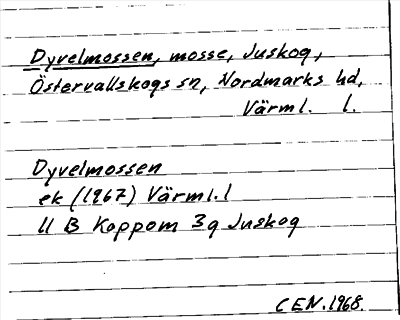 Dyvelmossen, mosse, Juskog,
Östervallskogs sn, Nordmarks hd,
Värml. l.
Dyvelmossen
ek (1967) Värml.l
11 B Koppom 3g Juskog
CEN.1968.